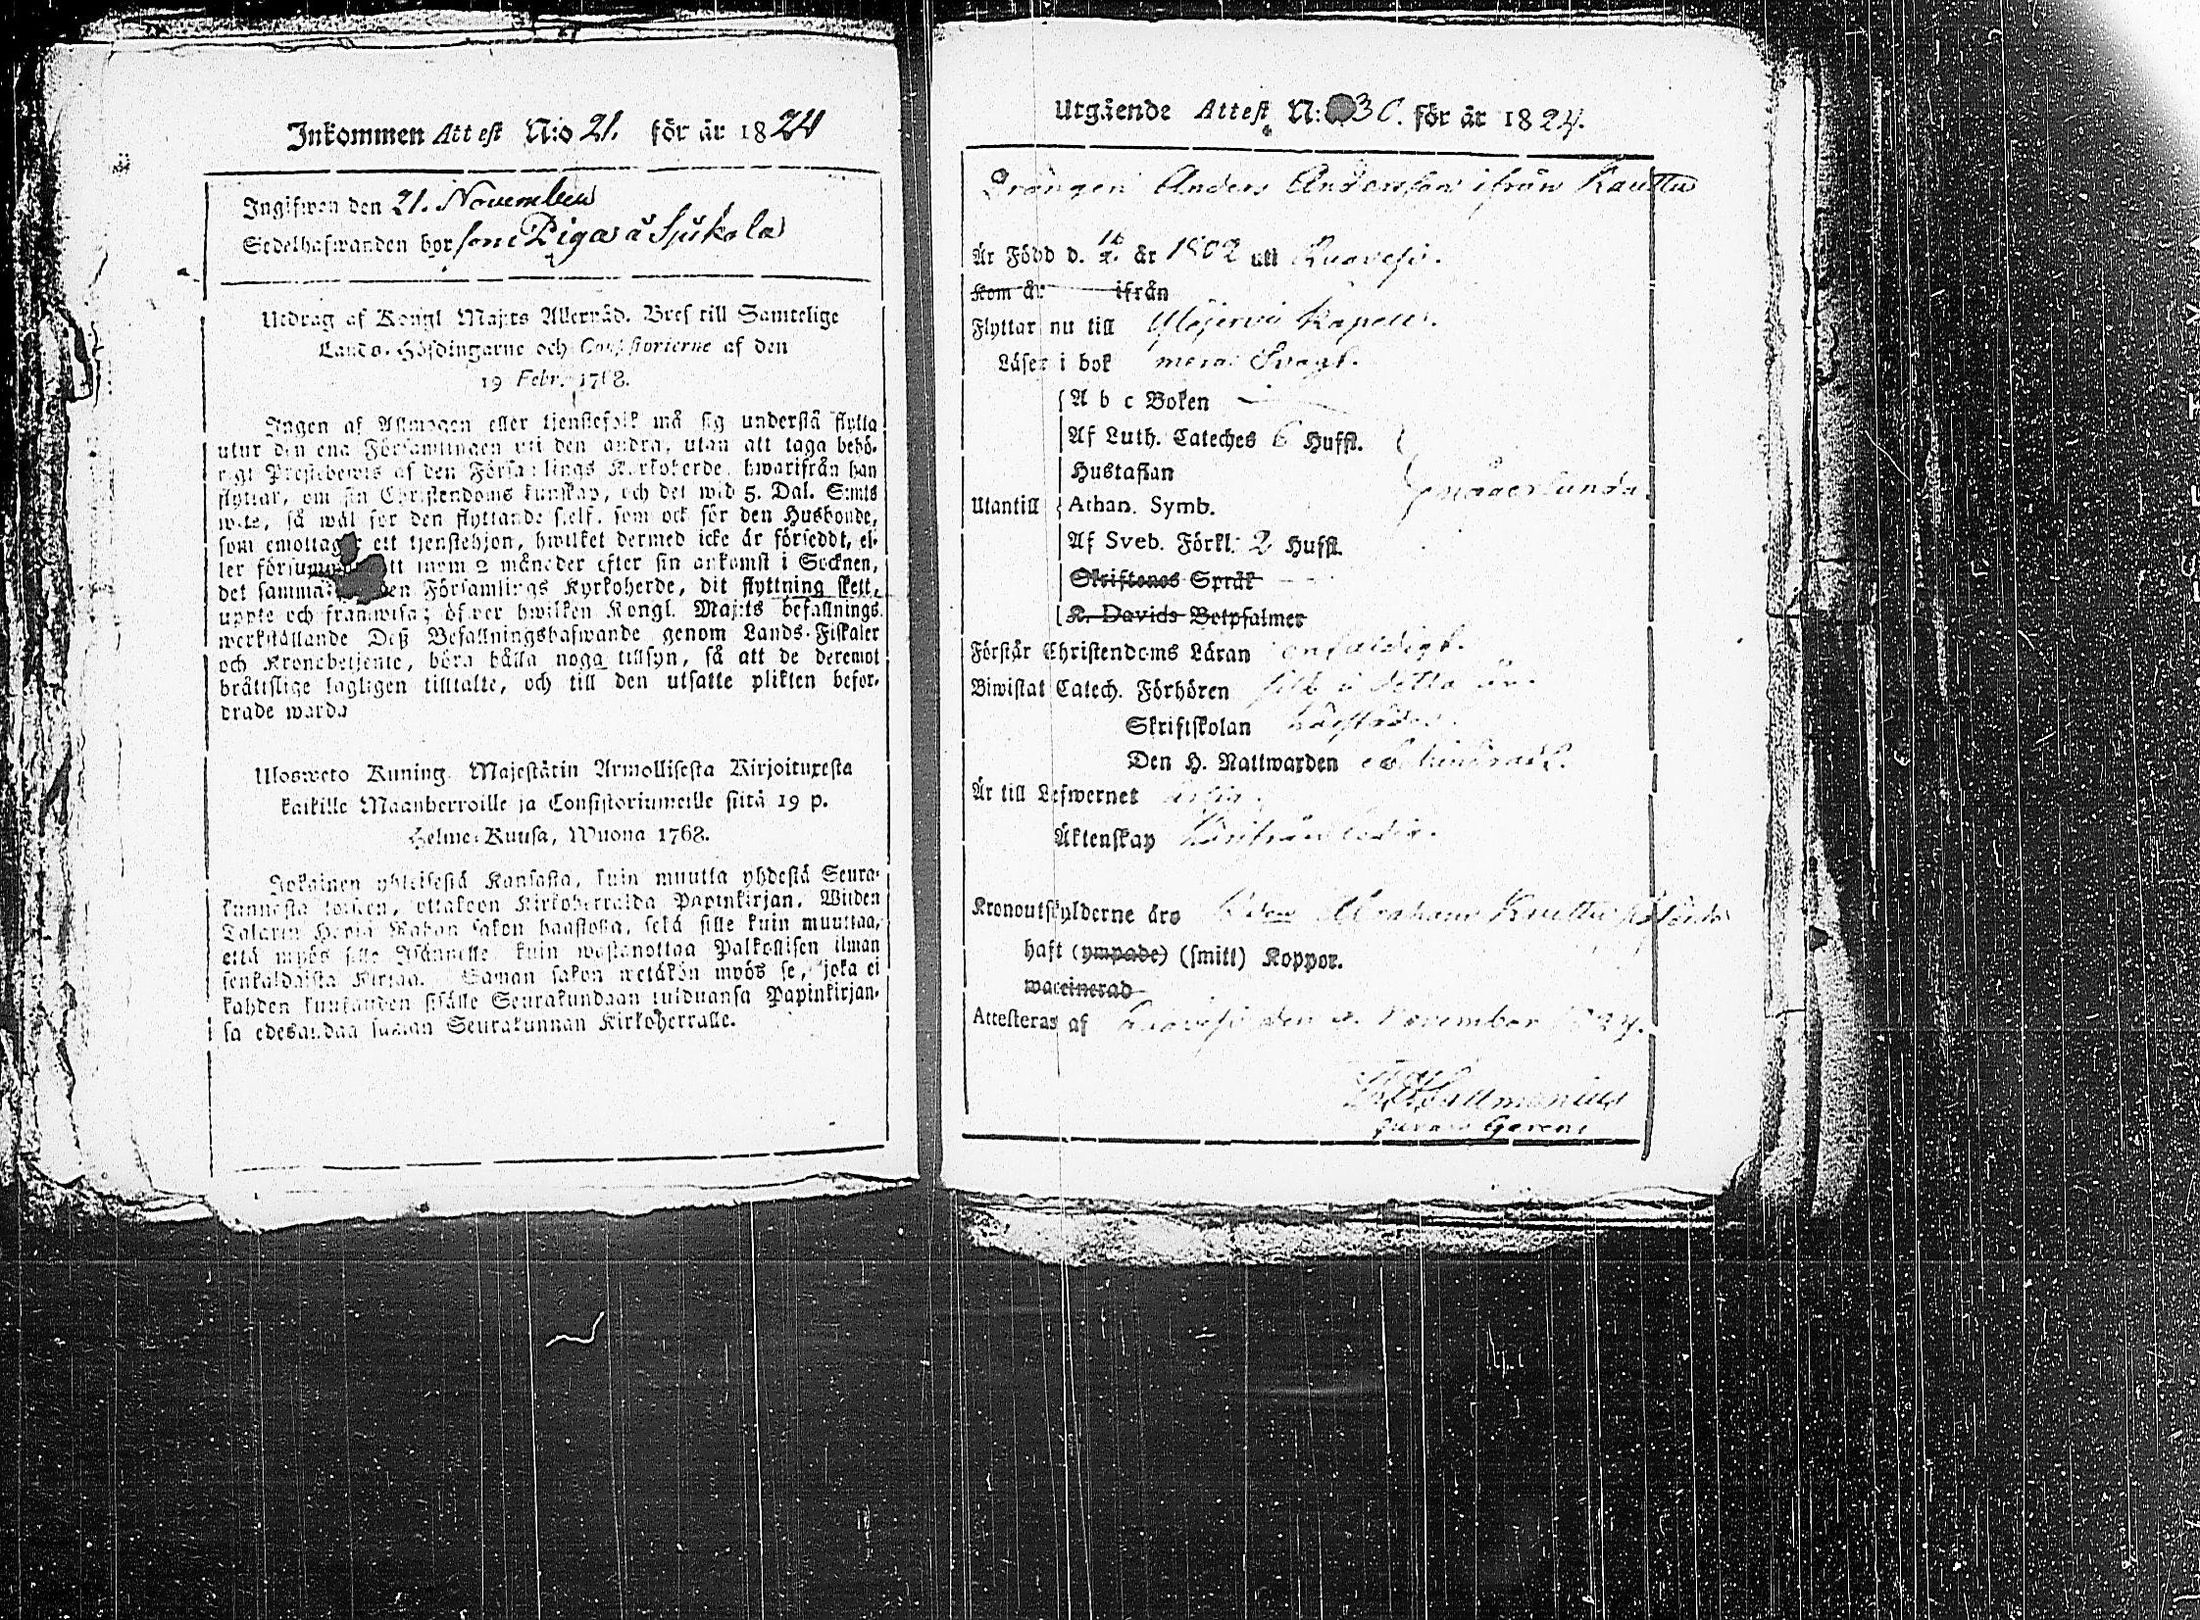 Inkommen Attest N:o 21. för år 1824
Ingifwen den 21. November
Sedelhafwanden bor som Piga å Sjukola
Utdrag af Kongl Maj:ts Allernåd. Bref till Samtelige
Lands-Höfdingarne och Consistorierne af den
19 Febr. 1768.
Ingen af Allmogen eller tjenstefolk må sig understå flytta
utur den ena Församlingen uti den andra, utan att taga behö-
rigt Prestebewis af den Församlings Kyrkoherde, hwarifrån han
flyttar, om sin Christendoms kunskap, och det wid 5. Dal. S:mts
wite, så wäl för den flyttande sielf, som ock för den Husbonde,
som emottager ett tjenstehjon, hwilket dermed icke är försedt, el-
ler försummar att inom 2 månader efter sin ankomst i Socknen,
det samma den Församlings Kyrkoherde, dit flyttning skett,
uppte och framwisa; öfwer hwilken Kongl. Maj:ts befallnings
werkställande Deß Befallningshafwande genom Lands-Fiskaler
och Kronobetjente, böra hålla noga tillsyn, så att de deremot
bråttslige lagligen tilltalte, och till den utsatte plikten befor-
drade warda
Ulosweto Kuning. Majestätin Armollisesta Kirjoituxesta
kaikille Maanherroille ja Consistoriumeille siitä 19 p.
Helme-Kuusa, Wuona 1768.
Jokainen yhteisestä Kansasta, kuin muutta yhdestä Seura-
kunnasta toiseen, ottakoon Kirkoherralda Papinkirjan, Wiiden
Talarin Hopia Rahan sakon haastolla, sekä sille kuin muuttaa,
että myös sille Isännelle kuin wastanottaa Palkollisen ilman
senkaldaista Kirjaa. Saman sakon wetäkön myös se, joka ei
kahden kuukauden sisälle Seurakundaan tulduansa Papinkirjan-
sa edesandaa saman Seurakunnan Kirkoherralle.
Utgående Attest N: 30. för år 1824.
Drängen Anders Andersson ifrån Kauttu
Är Född d. 16/2. år 1802 uti Ruovesi.
Kom år ifrån
Flyttar nu till Ylöjervi Kapell.
Läser i bok svagt.
A b c Boken
Af Luth. Cateches 6 Huffst.
Hustaflan
Utantill Athan. Symb.
Af Sveb. Förkl. 2 Huffst.
Skriftenes Språk
K. Davids Botpsalmer
Förstår Christendoms Läran enfaldigt.
Biwistat Catech. Förhören detta år.
Skriftskolan
Den H. Nattwarden
Är till Lefwernet
Äktenskap härifrån ledig.
Kronoutskylderne äro Abraham Kauttu
haft (ympade) (smitt) Koppor.
waccinerad
Attesteras af Ruovesi den November 1824.